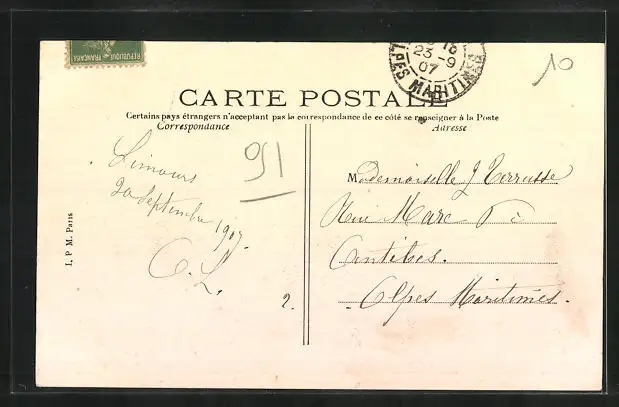 REPUBLIQUE FRANÇAISE
10
23 -9
07
ALPES MARITIMES
CARTE POSTALE
Certains pays étrangers n'acceptant pas la correspondance de ce côté se renseigner à la Poste
Correspondance
Adresse
Limours
20 Septembre 1907.
C. L.
2.
91
Mademoiselle J Terrusse
Rue Marc
Antibes.
Alpes Maritimes.
I. P M. Paris